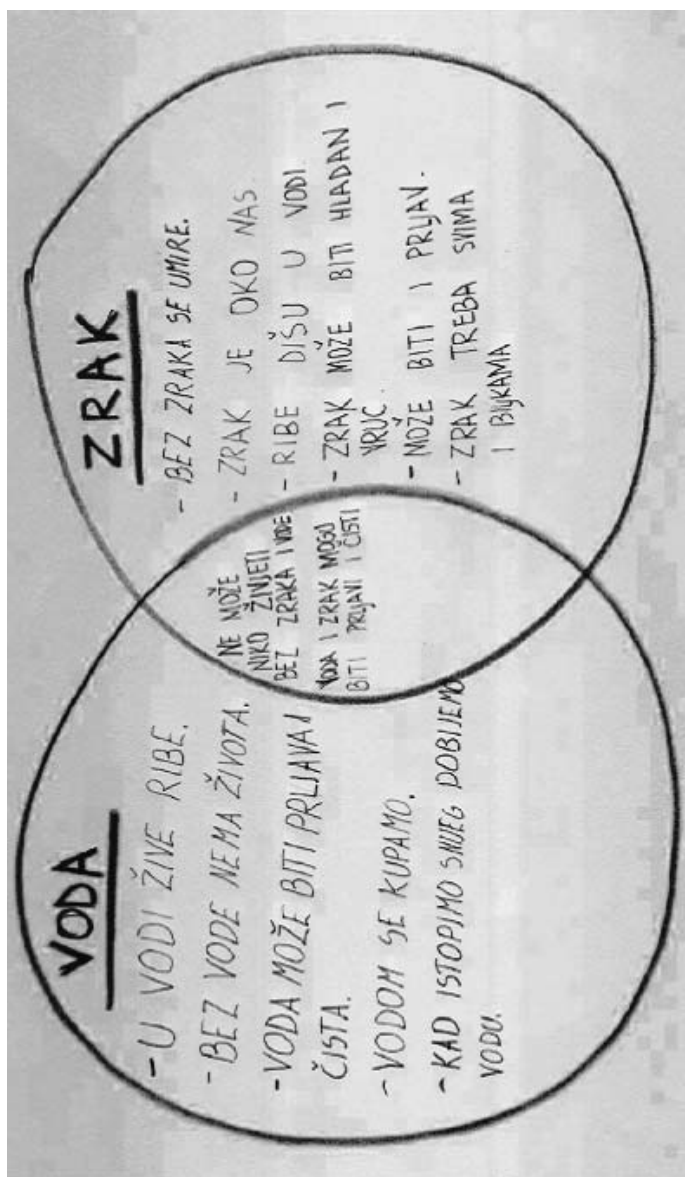 VODA
- U VODI ŽIVE RIBE.
- BEZ VODE NEMA ŽIVOTA.
- VODA MOŽE BITI PRLJAVA I
ČISTA.
- VODOM SE KUPAMO.
- KAD ISTOPIMO SNIJEG DOBIJEMO
VODU.
NE MOŽE
NIKO ŽIVJETI
BEZ ZRAKA I VODE
VODA I ZRAK MOGU
BITI PRLJAVI I ČISTI
ZRAK
- BEZ ZRAKA SE UMIRE.
- ZRAK JE OKO NAS
- RIBE DIŠU U VODI.
- ZRAK MOŽE BITI HLADAN I
VRUĆ.
- MOŽE BITI I PRLJAV.
- ZRAK TREBA SVIMA
I BILJKAMA